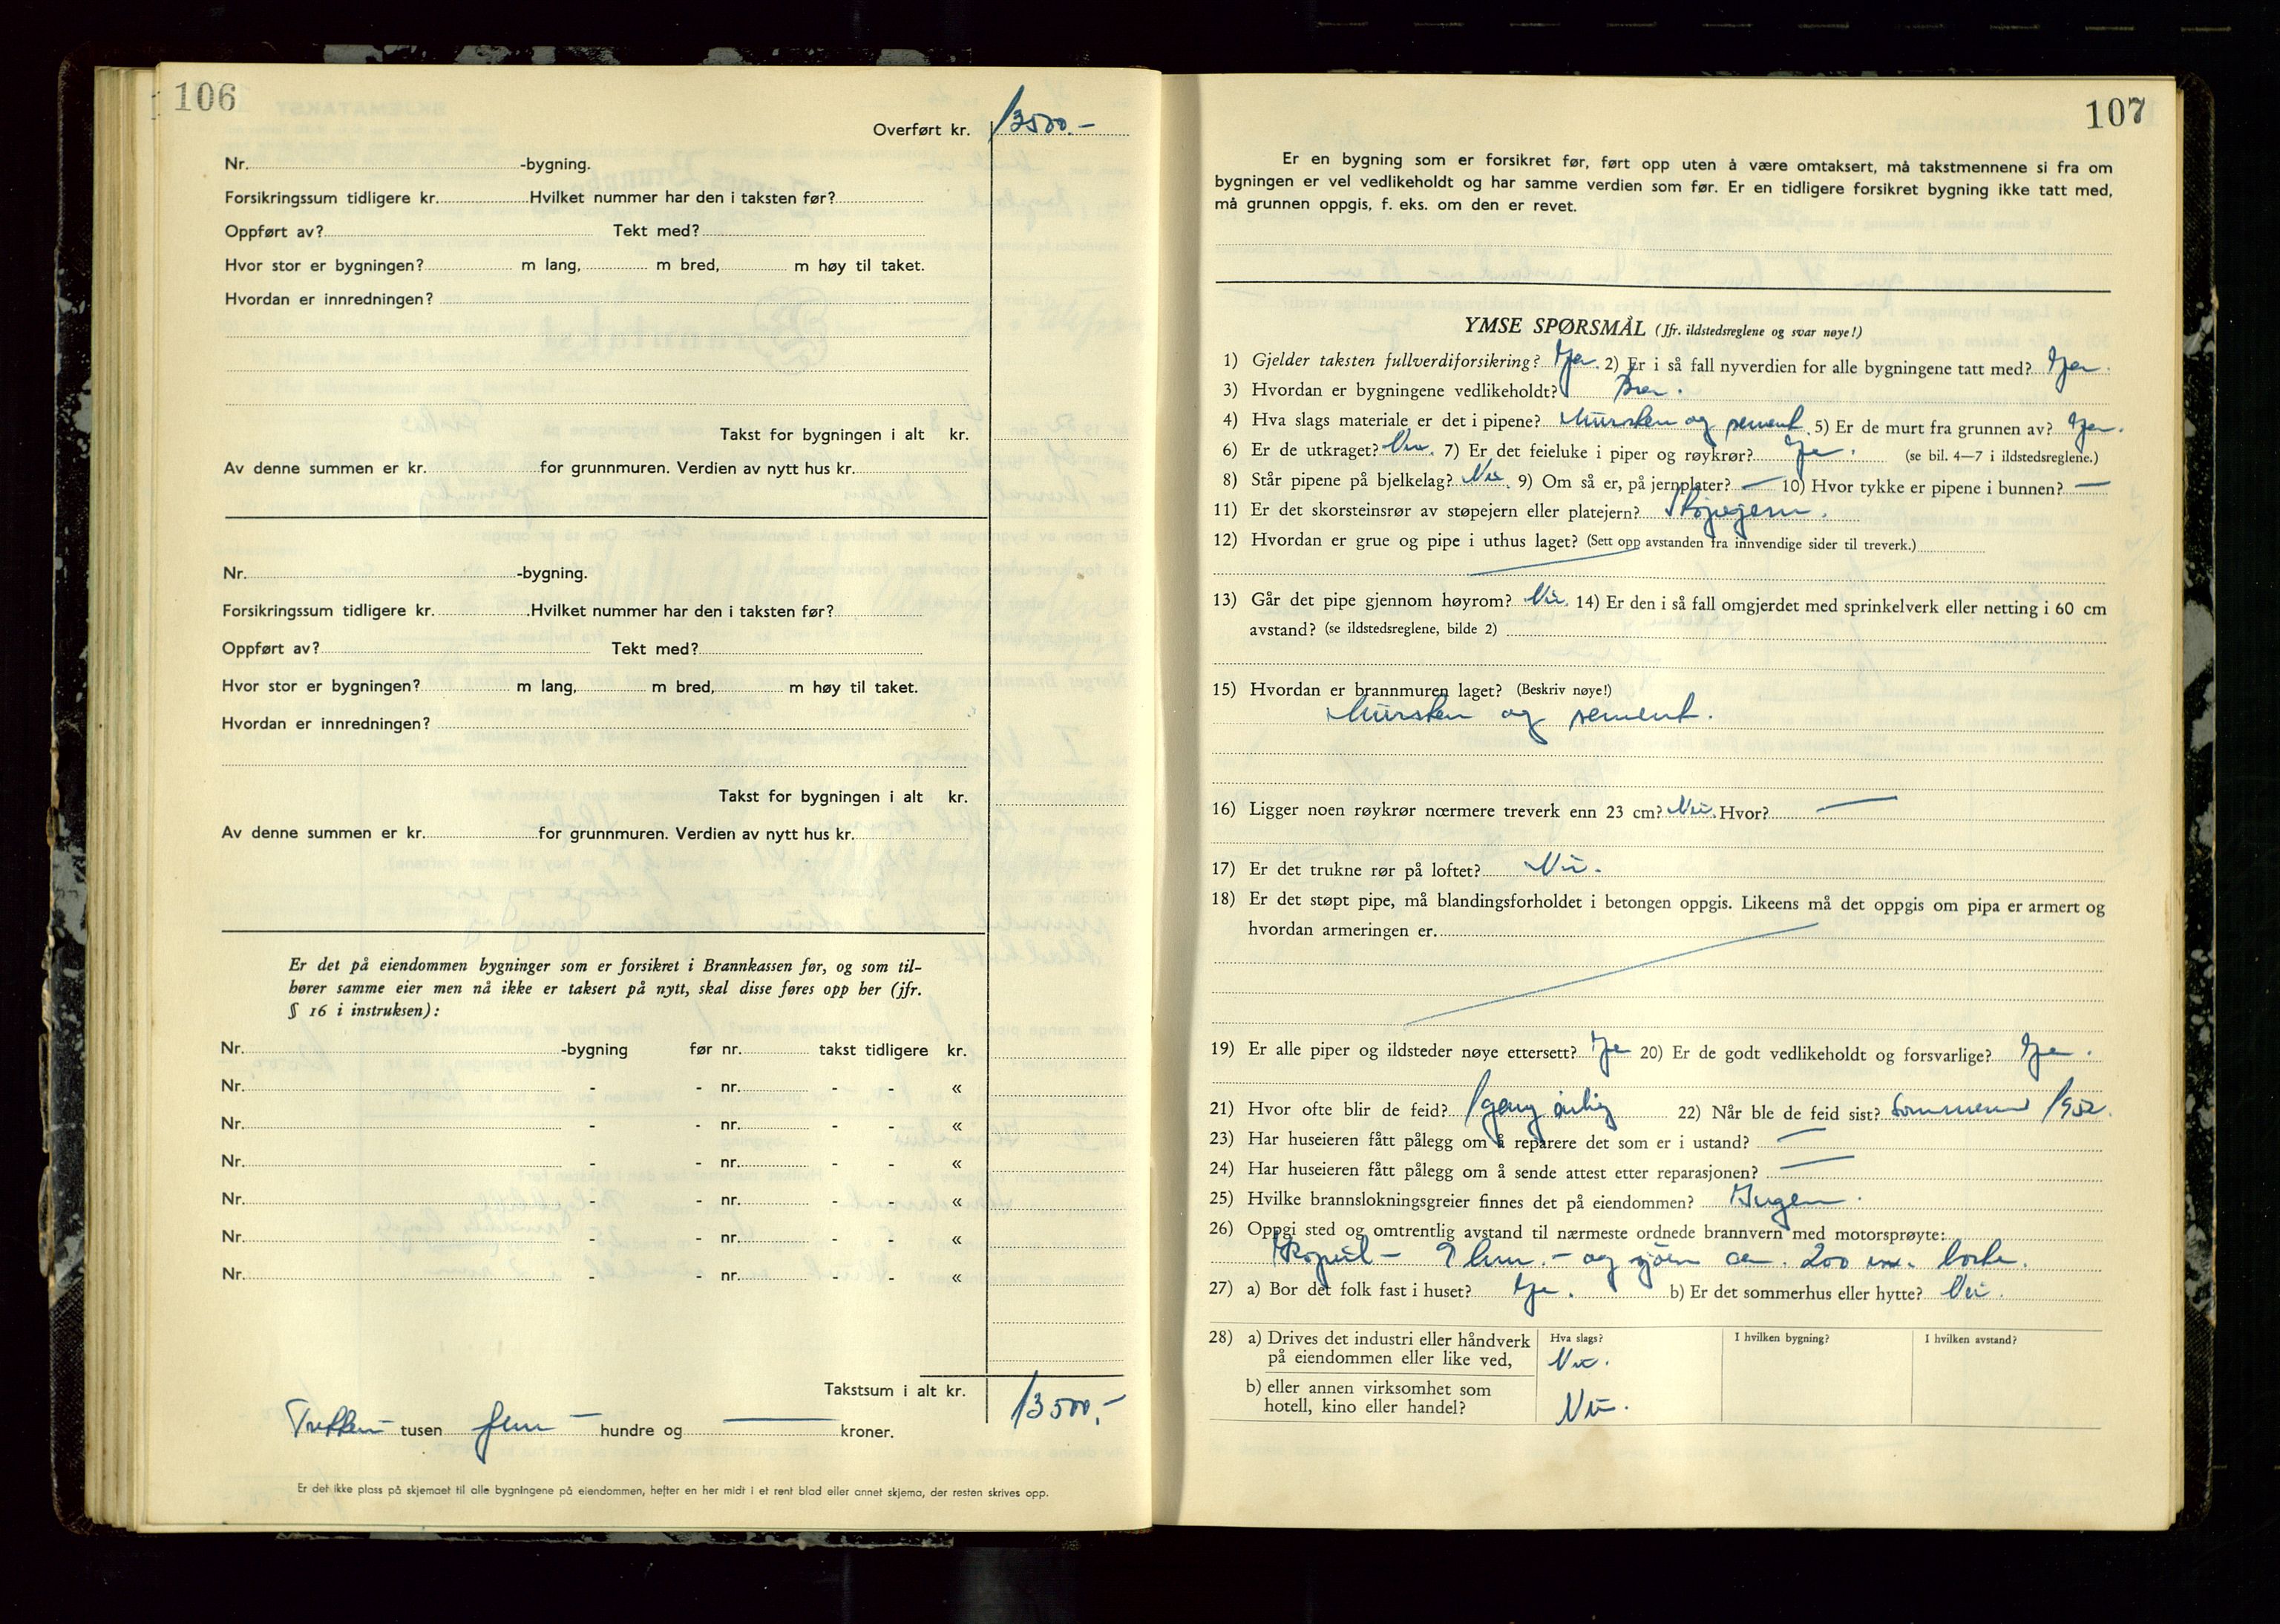 106
Overført kr. 13500.-
Nr. -bygning.
Forsikringssum tidligere kr. Hvilket nummer har den i taksten før?
Oppført av? Tekt med?
Hvor stor er bygningen? m lang, m bred, m høy til taket.
Hvordan er innredningen?
Takst for bygningen i alt kr.
Av denne summen er kr. for grunnmuren. Verdien av nytt hus kr.
Nr. -bygning.
Forsikringssum tidligere kr. Hvilket nummer har den i taksten før?
Oppført av? Tekt med?
Hvor stor er bygningen? m lang, m bred, m høy til taket.
Hvordan er innredningen?
Takst for bygningen i alt kr.
Av denne summen er kr. for grunnmuren. Verdien av nytt hus kr.
Er det på eiendommen bygninger som er forsikret i Brannkassen før, og som til-
hører samme eier men nå ikke er taksert på nytt, skal disse føres opp her (jfr.
§ 16 i instruksen):
Nr. -bygning før nr. takst tidligere kr.
Nr. - - nr. - - «
Nr. - - nr. - - «
Nr. - - nr. - - «
Nr. - - nr. - - «
Nr. - - nr. - - «
Nr. - - nr. - - «
Takstsum i alt kr. 13500.-
Tretten tusen fem hundre og — kroner.
Er det ikke plass på skjemaet til alle bygningene på eiendommen, hefter en her midt i et rent blad eller annet skjema, der resten skrives opp.
107
Er en bygning som er forsikret før, ført opp uten å være omtaksert, må takstmennene si fra om
bygningen er vel vedlikeholdt og har samme verdien som før. Er en tidligere forsikret bygning ikke tatt med,
må grunnen oppgis, f. eks. om den er revet.
YMSE SPØRSMÅL (Jfr. ildstedsreglene og svar nøye!)
1) Gjelder taksten fullverdiforsikring? Ja. 2) Er i så fall nyverdien for alle bygningene tatt med? Ja.
3) Hvordan er bygningene vedlikeholdt? Bra.
4) Hva slags materiale er det i pipene? Mursten og sement. 5) Er de murt fra grunnen av? Ja.
6) Er de utkraget? Nei. 7) Er det feieluke i piper og røykrør? Ja. (se bil. 4—7 i ildstedsreglene.)
8) Står pipene på bjelkelag? Nei. 9) Om så er, på jernplater? — 10) Hvor tykke er pipene i bunnen? —
11) Er det skorsteinsrør av støpejern eller platejern? Støpejern.
12) Hvordan er grue og pipe i uthus laget? (Sett opp avstanden fra innvendige sider til treverk.)
13) Går det pipe gjennom høyrom? Nei. 14) Er den i så fall omgjerdet med sprinkelverk eller netting i 60 cm
avstand? (se ildstedsreglene, bilde 2)
15) Hvordan er brannmuren laget? (Beskriv nøye!)
Mursten og sement.
16) Ligger noen røykrør nærmere treverk enn 23 cm? Nei. Hvor? —
17) Er det trukne rør på loftet? Nei.
18) Er det støpt pipe, må blandingsforholdet i betongen oppgis. Likeens må det oppgis om pipa er armert og
hvordan armeringen er.
19) Er alle piper og ildsteder nøye ettersett? Ja 20) Er de godt vedlikeholdt og forsvarlige? Ja.
21) Hvor ofte blir de feid? 1 gang årlig 22) Når ble de feid sist? Sommeren 1952.
23) Har huseieren fått pålegg om å reparere det som er i ustand? —
24) Har huseieren fått pålegg om å sende attest etter reparasjonen? —
25) Hvilke brannslokningsgreier finnes det på eiendommen? Ingen.
26) Oppgi sted og omtrentlig avstand til nærmeste ordnede brannvern med motorsprøyte:
- 9 km. - og sjøen ca. 200 m. borte.
27) a) Bor det folk fast i huset? Ja. b) Er det sommerhus eller hytte? Nei.
28) a) Drives det industri eller håndverk Hva slags? I hvilken bygning? I hvilken avstand?
på eiendommen eller like ved, Nei.
b) eller annen virksomhet som
hotell, kino eller handel? Nei.